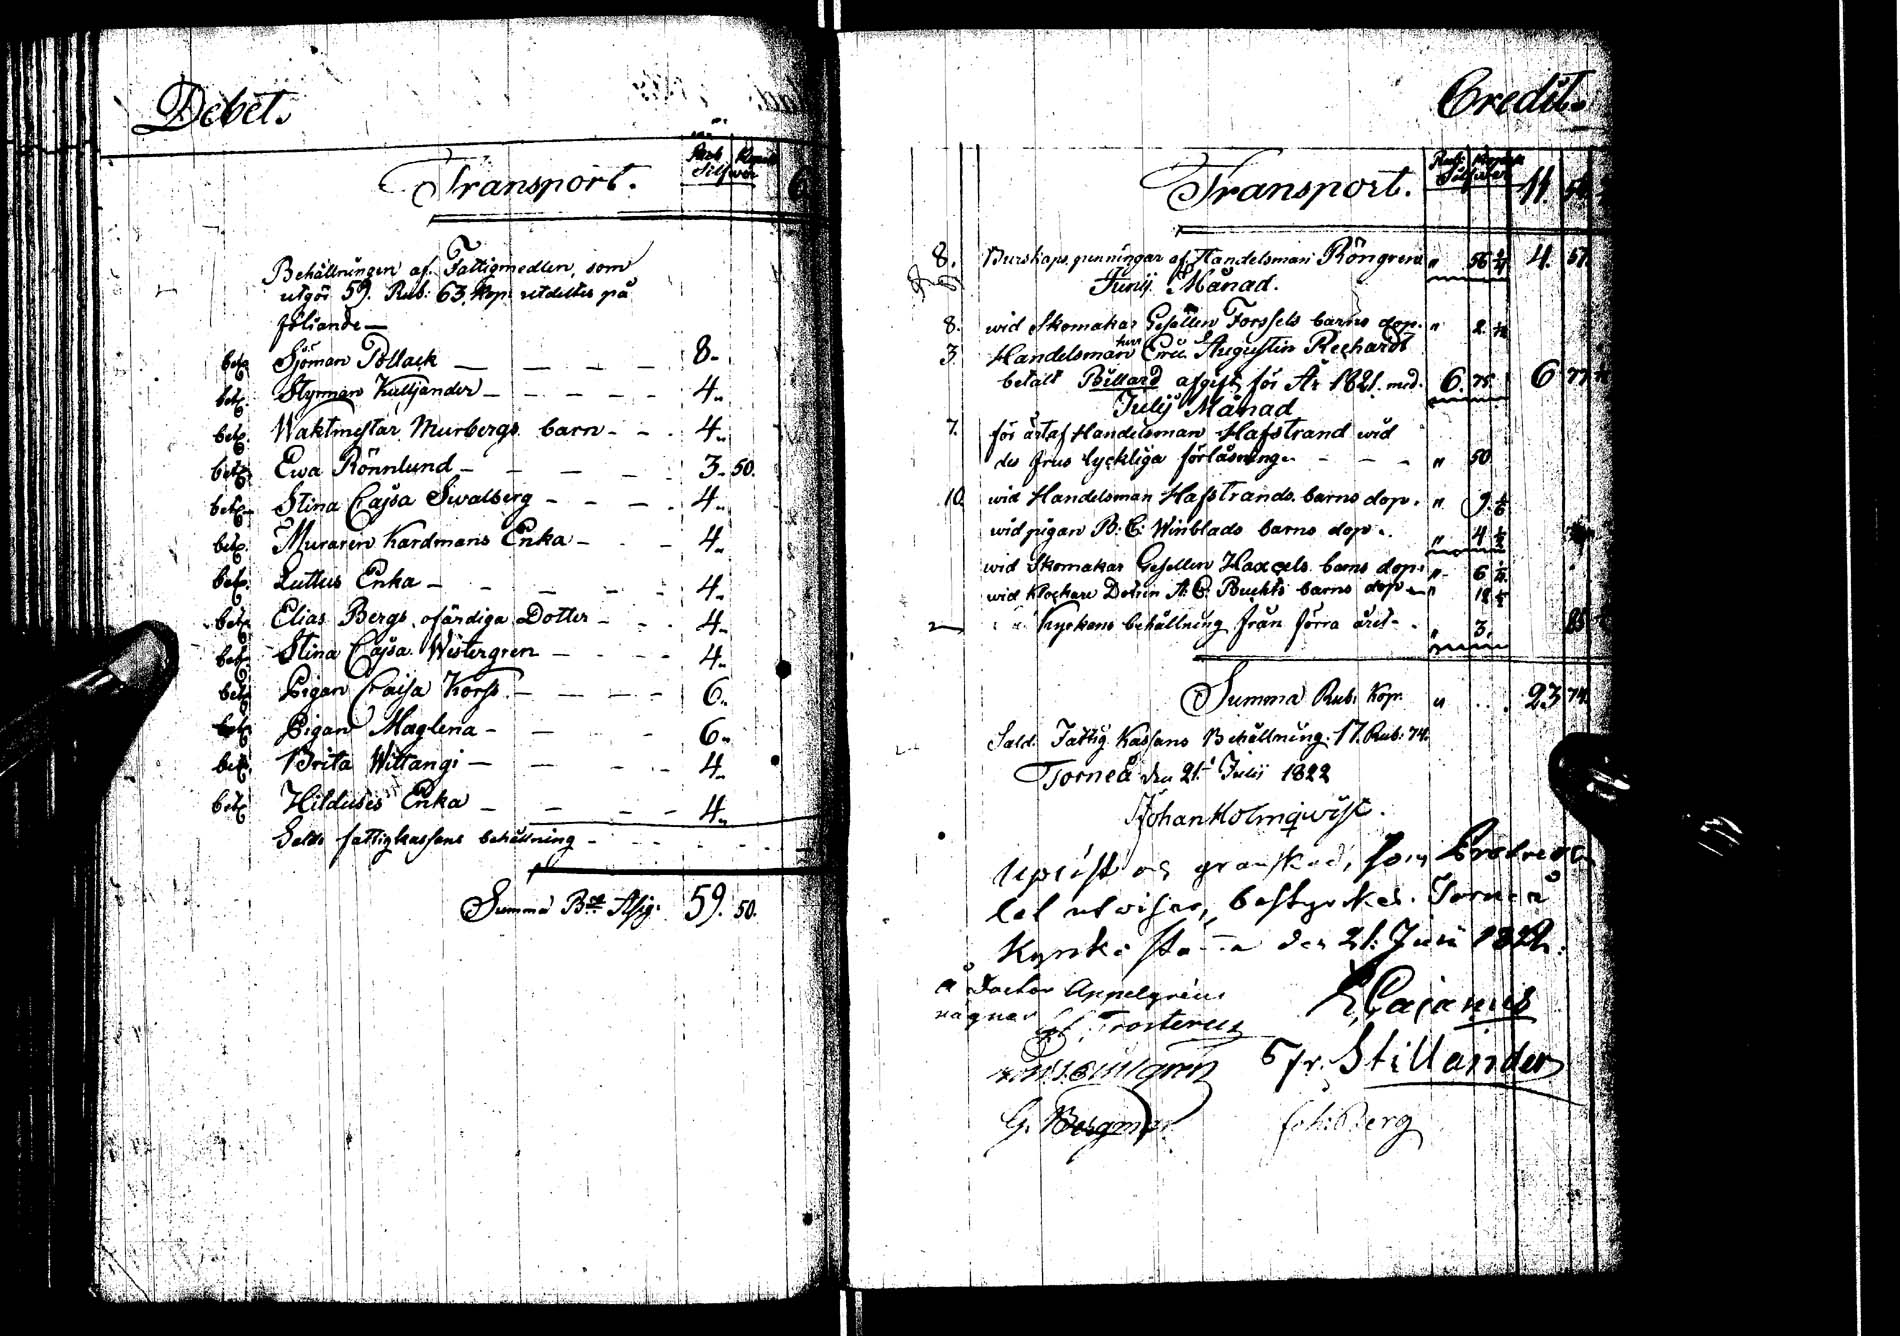 Debet.
Rub Kopek
Silfwer
Transport. 6
Behållningen af Fattigmedlen, som
utgör 59. Rub: 63. Kop: utdeltes på
följande —
bet. Sjöman Pollack — — — — 8.
bet. Styrman Kulljander — — — — 4.
bet. Waktmestar Murbergs barn - - 4.
bet. Ewa Rönnlund — — — — 3. 50.
bet. Stina Cajsa Swalberg - - - - 4.
bet. Muraren Kardmans Enka - - - 4.
bet. Luttus Enka — — — — 4.
bet. Elias Bergs ofärdiga Dotter - - - 4.
bet. Stina Cajsa Wistergren - - - - 4.
bet. Pigan Caisa Korss. — — — 6.
bet. Pigan Maglena — — — 6.
bet. Brita Wittangi — — — 4.
bet. Hilduses Enka — — — 4.
Saldo fattigkassans behållning - - - -
Summa Bco Assig: 59. 50.
Credit.
Rub: Kopek
Silfwer
Transport. 11.
8. Burskaps penningar af Handelsman Röngren " 56 1/4 4. 57.
Junij Månad.
8. wid Skomakar Gesällen Forssels barns dop. " 2
3 Handelsman herr Eric Augustin Rechardt
betalt Billard afgift för År 1821. med. 6. 75. 6 77
Julij Månad
7. för ärtaf Handelsman Hafstrand wid
des frus lyckliga förlåsning. - - - " 50
10. wid Handelsman Hafstrands barns dop. " 9.
wid pigan B: C: Winblads barns dop. " 4 1/2
wid Skomakar Gesellen barns dop. " 6
wid klockare A. C. barns dop " 18
Kyrkans behållning från förra året - - " 3.
Summa Rub. Kop. " . . . 23 74.
Sald. Fattig Kassans Behållning. 17. Rub: 74.
Torneå den 21. Julij 1822
Johan Holmqwist.
Upläst och granskad, som
let utwisar, bestyrkes. Torneå
Kyrko den 21. 1822.
Doctor Appelgrens
vägnar
E, Cajanus
Frosterus
Stillander
G. Bergman
Joh: Berg